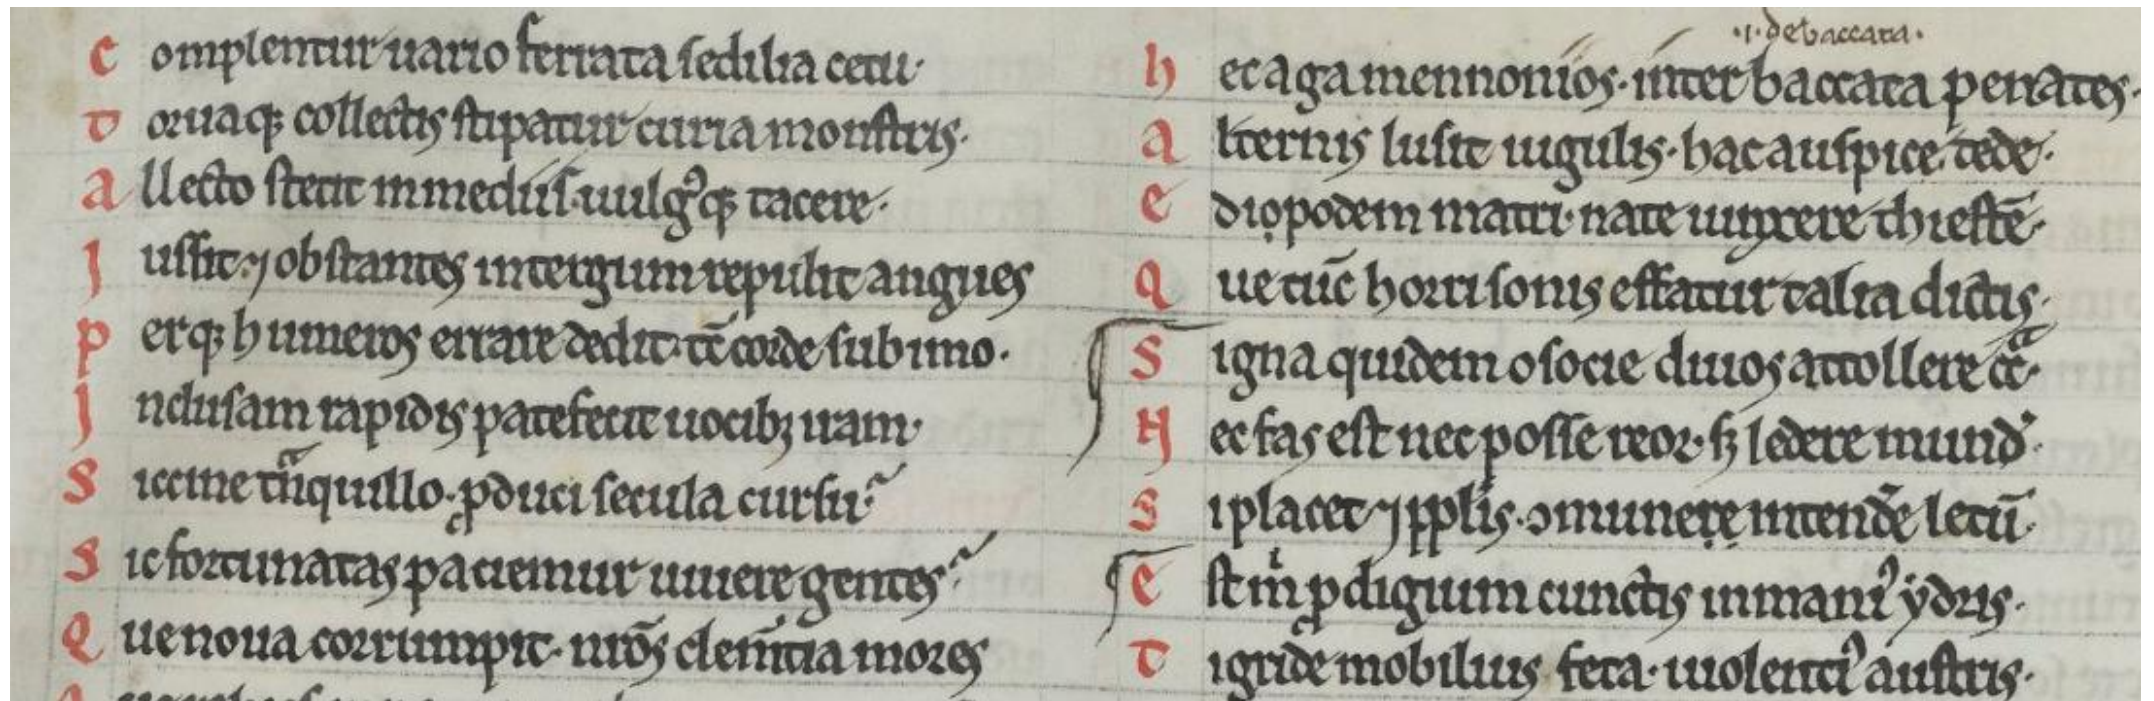 Complentur uario ferrata sedilia cetu·
Toruaqꝫ collectis stipatur curia monstris·
Allecto stetit in mediis· uulgꝰqꝫ tacere·
Iussit· ⁊ obstantes intergum repulit angues
Perqꝫ humeros errare dedit· tc̄ corde sub imo·
Inclusam rapidis patefecit uocibꝫ iram·
Siccine tᷓnquillo· ꝓduci secula cursu·
Sic fortunatas paciemur uiuere gentes·
Que noua corrumpit· nr̄os clem̄tia mores
·i· debaccata·
hec agamennonios· inter baccata penates·
Alternis lusit iugulis· hac auspice· tede·
Ediopodem matri· nate iunxere thiestē·
Que tūc horrisonis effatur talia dictis·
Signa quidem o socie diuos attollere cᷓ·
Nec fas est nec posse reor· sꝫ ledere mundꝰ·
Si placet ⁊ pplīs· ꝯmunere intendēe letū·
Est m̄ ꝓdigium cunctis inmaniꝰ ydris·
Tigride mobilius feta· uiolentiꝰ austris·